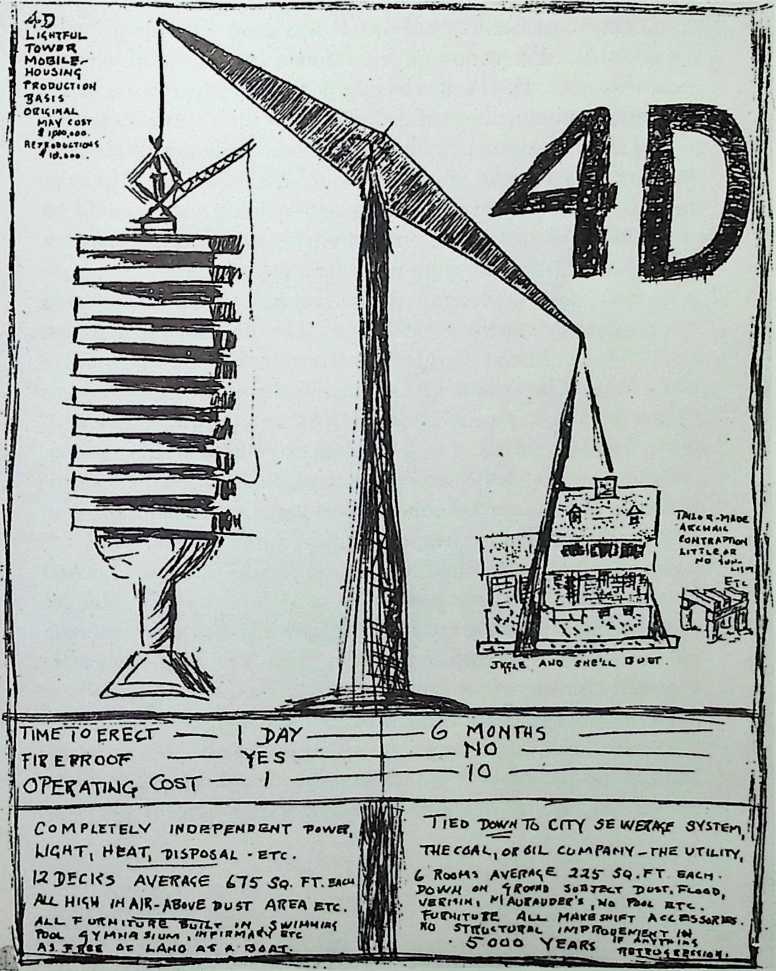 4D
LIGHTFUL
TOWER
MOBILE-
HOUSING
PRODUCTION
BASIS
ORIGINAL
MAY COST
REPRODUCTIONS
$10,000.
4D
TAILOR-MADE
ARCHAIC
CONTRAPTION
LITTLE OR
NO SUN-
LIGHT
ETC
JIGGLE AND SHE'LL BUST.
TIME TO ERECT — 1 DAY — 6 MONTHS
FIREPROOF — YES — NO
OPERATING COST — 1 — 10
COMPLETELY INDEPENDENT POWER,
LIGHT, HEAT, DISPOSAL - ETC.
12 DECKS AVERAGE 675 SQ. FT. EACH
ALL HIGH IN AIR-ABOVE DUST AREA ETC.
ALL FURNITURE BUILT IN SWIMMING
POOL GYMNASIUM, INFIRMARY ETC
AS FREE OF LAND AS A BOAT.
TIED DOWN TO CITY SEWERAGE SYSTEM,
THE COAL, OR OIL COMPANY - THE UTILITY,
6 ROOMS AVERAGE 225 SQ. FT. EACH.
DOWN ON GROUND SUBJECT DUST, FLOOD,
VERMIN, MARAUDER'S, NO POOL ETC.
FURNITURE ALL MAKESHIFT ACCESSORIES.
NO STRUCTURAL IMPROVEMENT IN
5000 YEARS IF ANYTHING
RETROGRESSION.